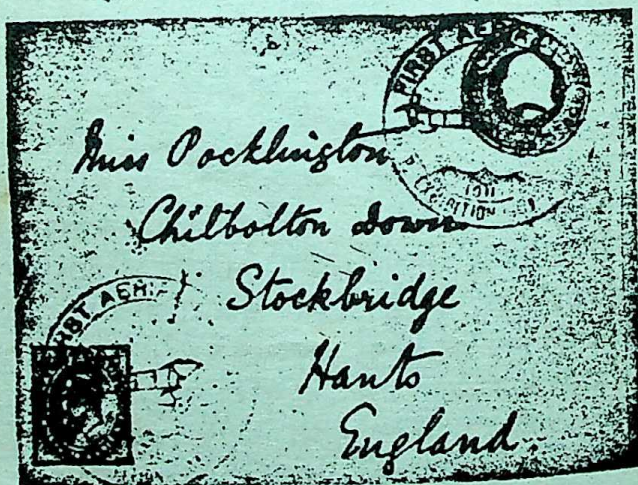 FIRST AE
1911
EXHIBITION
Miss Pocklington
Chilbolton Down
Stockbridge
Hants
England
FIRST AER